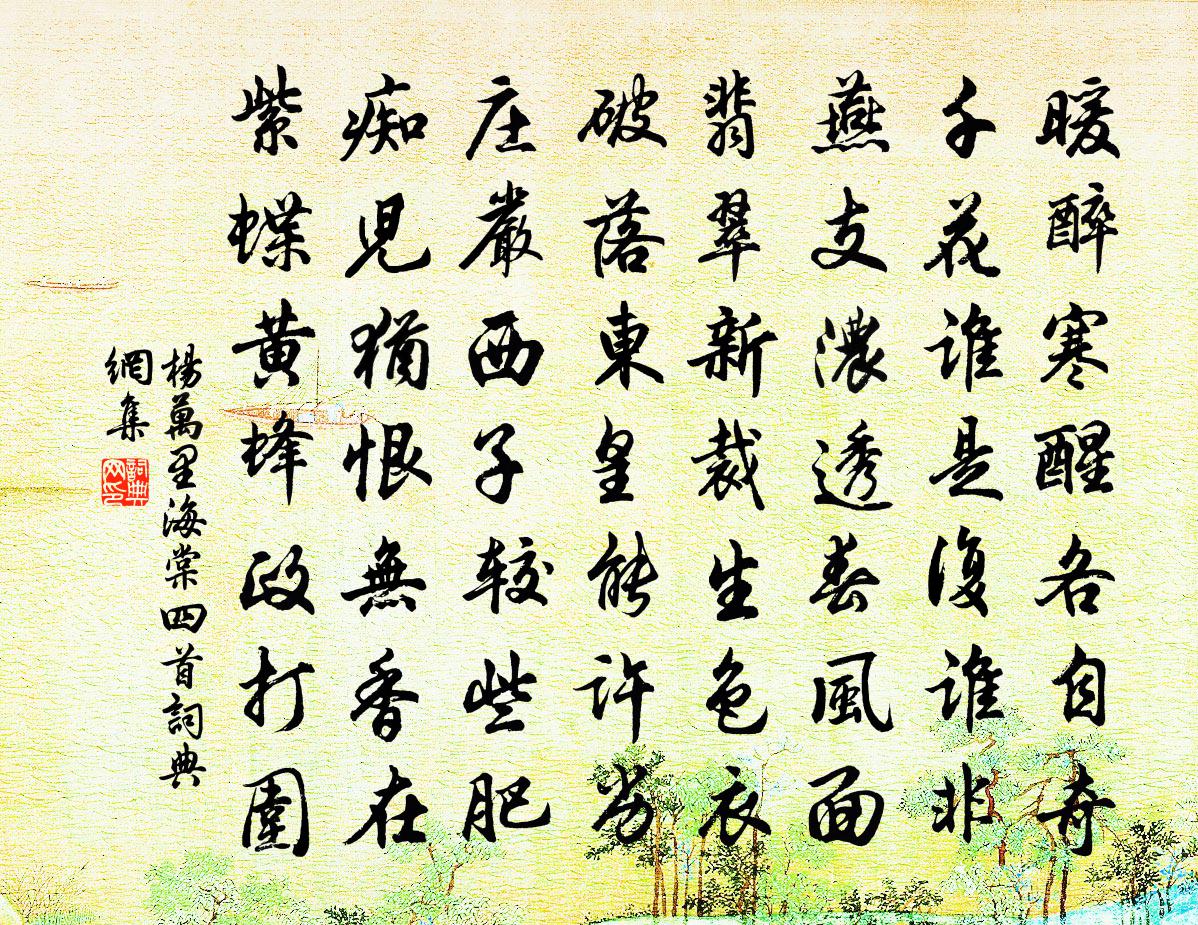 暖醉寒醒各自奇
千花誰是復誰非
燕支濃透春風面
翡翠新裁生色衣
破落東皇能許劣
庄嚴西子較些肥
痴児猶恨無香在
紫蝶黄蜂政打圍
楊萬里海棠四首詞典
網集
詞典
网印